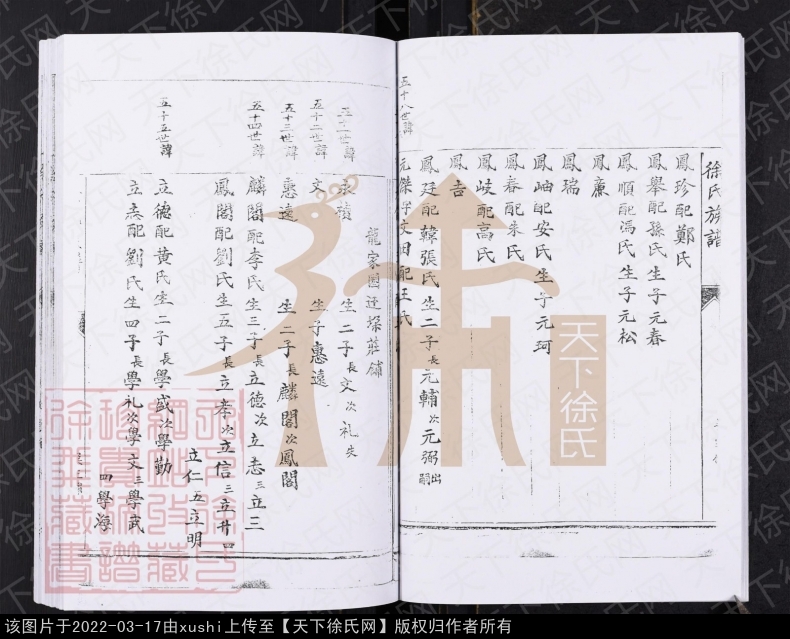 徐氏族譜
鳳珍配鄭氏
鳳舉配孫氏生子元春
鳳順配馮氏生子元松
鳳廉
鳳瑞
鳳岫配安氏生子元珂
鳳春配朱氏
鳳岐配高氏
鳳吉
鳳廷配韓張氏生二子長元輔次元弼出嗣
五十八世諱
元傑字文田配王氏
龍家圈迁垛莊鋪
生二子長文次礼失
五十二世諱
文 生子惠遠
五十三世諱
惠遠 生二子長麟閣次鳳閣
五十四世諱
麟閣配李氏生三子長立德次立志三立三
鳳閣配劉氏生五子長立孝次立信三立廿四立仁五立明
五十五世諱
立德配黄氏生二子長學盛次學勤
配劉氏生四子長學礼次學文三學武四學海
天下徐氏
天下徐氏网
该图片于2022-03-17由xushi上传至【天下徐氏网】版权归作者所有